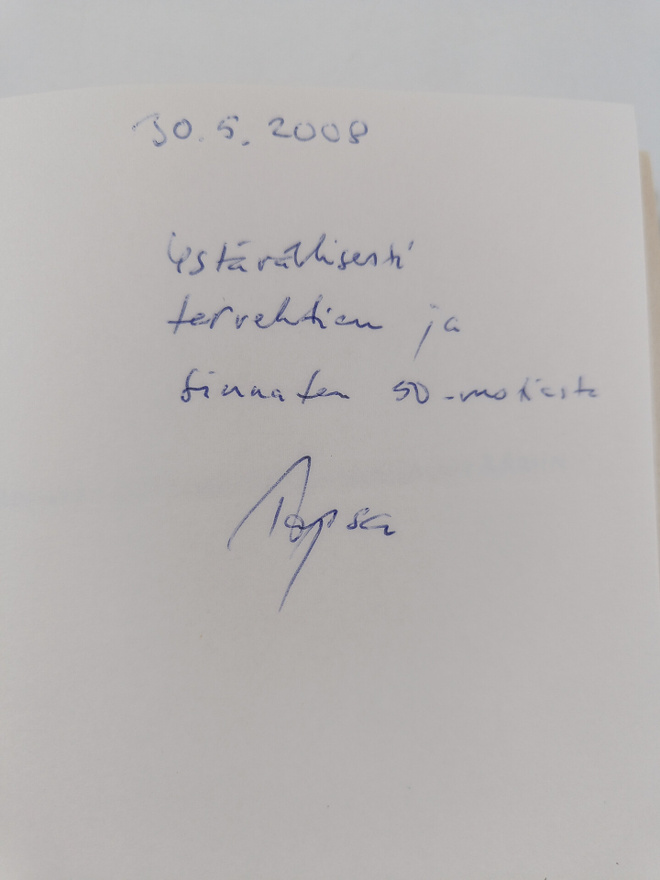 30.5.2008
ystävällisesti
tervehtien ja
siunaten 50-motista
Topsa